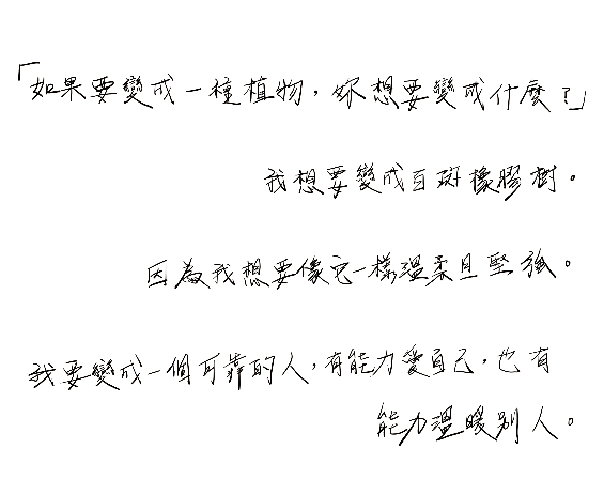 「如果要變成一種植物，妳想要變成什麼？」
我想要變成白斑橡膠樹。
因為我想要像它一樣溫柔且堅強。
我要變成一個可靠的人，有能力愛自己，也有
能力溫暖別人。